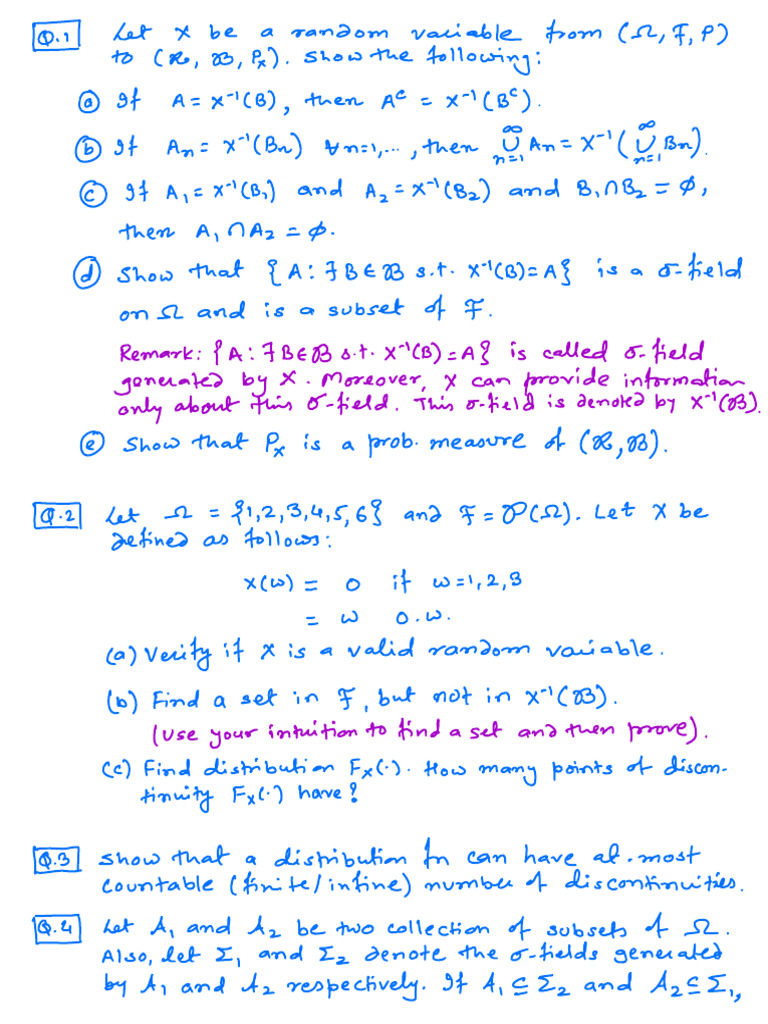 Q.1 Let X be a random variable from (Ω, F, P)
to (R, B, Pₓ). Show the following:
(a) If A = X⁻¹(B), then Aᶜ = X⁻¹(Bᶜ).
(b) If Aₙ = X⁻¹(Bₙ) ∀ n=1,..., then ∞∪n=1 Aₙ = X⁻¹(∞∪n=1 Bₙ).
(c) If A₁ = X⁻¹(B₁) and A₂ = X⁻¹(B₂) and B₁∩B₂ = ϕ,
then A₁∩A₂ = ϕ.
(d) Show that {A : ∃ B∈B s.t. X⁻¹(B)=A} is a σ-field
on Ω and is a subset of F.
Remark: {A : ∃ B∈B s.t. X⁻¹(B)=A} is called σ-field
generated by X. Moreover, X can provide information
only about this σ-field. This σ-field is denoted by X⁻¹(B).
(e) Show that Pₓ is a prob. measure of (R, B).
Q.2 Let Ω = {1,2,3,4,5,6} and F = P(Ω). Let X be
defined as follows:
X(ω) = 0 if ω=1,2,3
= ω o.w.
(a) Verify if X is a valid random variable.
(b) Find a set in F, but not in X⁻¹(B).
(Use your intuition to find a set and then prove).
(c) Find distribution Fₓ(·). How many points of discon-
tinuity Fₓ(·) have?
Q.3 Show that a distribution fn can have at-most
countable (finite/infine) number of discontinuities.
Q.4 Let A₁ and A₂ be two collection of subsets of Ω.
Also, let Σ₁ and Σ₂ denote the σ-fields generated
by A₁ and A₂ respectively. If A₁ ⊆ Σ₂ and A₂ ⊆ Σ₁,